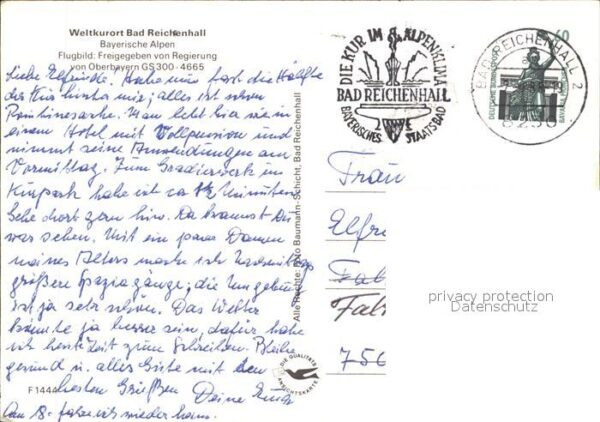 Weltkurort Bad Reichenhall
Bayerische Alpen
Flugbild: Freigegeben von Regierung
von Oberbayern GS 300 · 4665
Liebe Elfriede. Habe nun fast die Hälfte
der Kur hinter mir; alles ist schon
Routinesache. Man lebt hier wie in
einem Hotel mit Vollpension und
nimmt seine Anwendungen am
Vormittag. Zum Gradierwerk im
Kurpark habe ich ca Minuten.
Gehe dort gern hin. Da kannst Du
was sehen. Mit ein paar Damen
meines Alters mache ich nachmittags
größere Spaziergänge; die Umgebung
ist ja sehr schön. Das Wetter
könnte ja besser sein, dafür habe
ich heute Zeit zum Schreiben. Bleibe
gesund u. alles Gute mit den
besten Grüßen Deine
Am 18. fahre ich wieder heim.
F 1444
Alle Rechte: Foto Baumann-Schicht, Bad Reichenhall
DIE QUALITÄTS
ANSICHTSKARTE
DIE KUR IM ALPENKLIMA
BAD REICHENHALL
BAYERISCHES STAATSBAD
BAD REICHENHALL 2
8230
60
DEUTSCHE BUNDESPOST
Frau
Elfr
Fab
756
privacy protection
Datenschutz